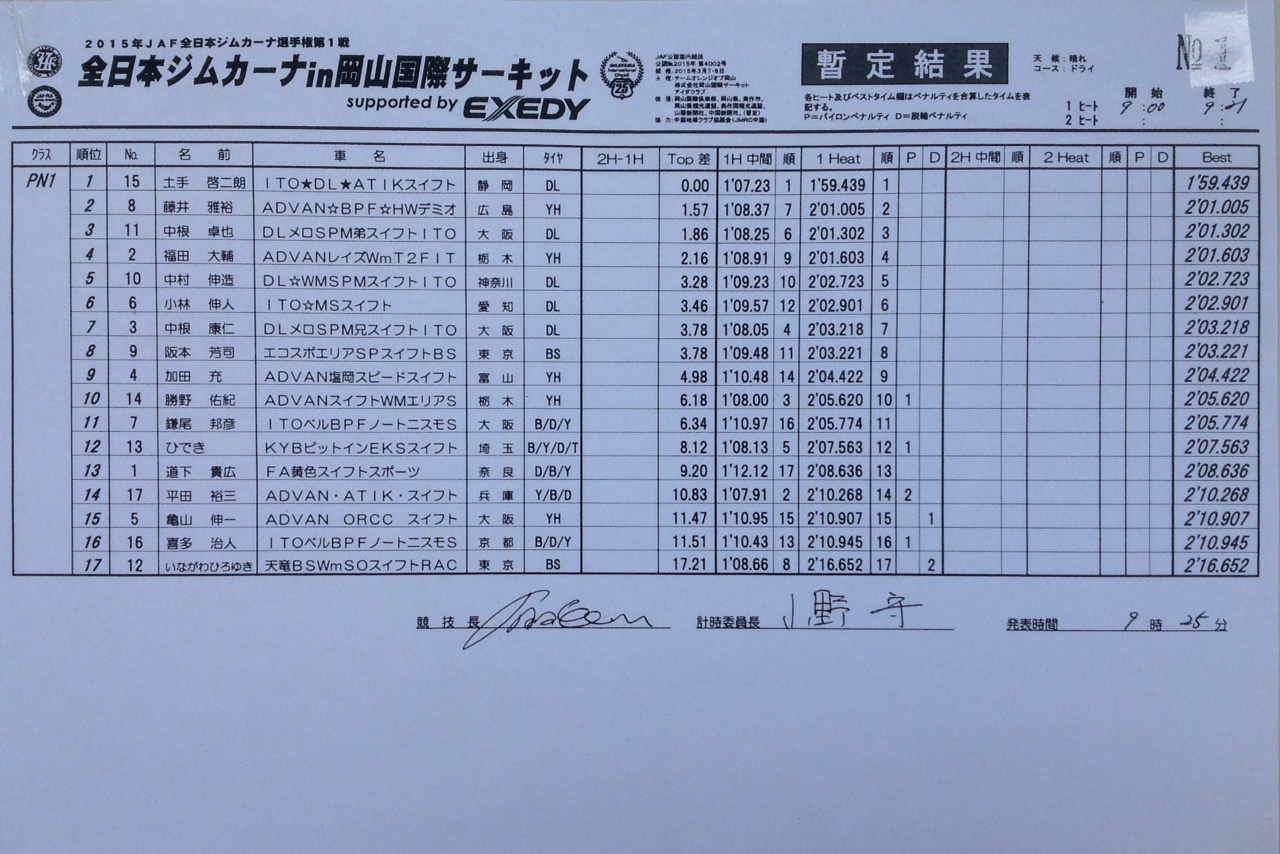 2015年JAF全日本ジムカーナ選手権第1戦
全日本ジムカーナin岡山国際サーキット
supported by EXEDY
25
JAF公認国内競技
公認No.2015年 第4002号
開 催：2015年3月7-8日
主 催：チームオレンジオブ岡山
株式会社岡山国際サーキット
アイダクラブ
協 力：中国地域クラブ協議会（JMRC中国）
暫定結果
各ヒート及びベストタイム欄はペナルティを合算したタイムを表
記する。
P＝パイロンペナルティ D＝脱輪ペナルティ
天 候：晴れ
コース：ドライ
No
開 始 終 了
1 ヒート 9 :00 9 :21
2 ヒート : :
クラス 順位 No. 名 前 車 名 出身 タイヤ 2H-1H Top 差 1H 中間 順 1 Heat 順 P D 2H 中間 順 2 Heat 順 P D Best
PN1 1 15 土手 啓二朗 ITO★DL★ATIKスイフト 静 岡 DL 0.00 1'07.23 1 1'59.439 1 1'59.439
2 8 藤井 雅裕 ADVAN☆BPF☆HWデミオ 広 島 YH 1.57 1'08.37 7 2'01.005 2 2'01.005
3 11 中根 卓也 DLメロSPM弟スイフトITO 大 阪 DL 1.86 1'08.25 6 2'01.302 3 2'01.302
4 2 福田 大輔 ADVANレイズWmT2FIT 栃 木 YH 2.16 1'08.91 9 2'01.603 4 2'01.603
5 10 中村 伸造 DL☆WMSPMスイフトITO 神奈川 DL 3.28 1'09.23 10 2'02.723 5 2'02.723
6 6 小林 伸人 ITO☆MSスイフト 愛 知 DL 3.46 1'09.57 12 2'02.901 6 2'02.901
7 3 中根 康仁 DLメロSPM兄スイフトITO 大 阪 DL 3.78 1'08.05 4 2'03.218 7 2'03.218
8 9 阪本 芳司 エコスポエリアSPスイフトBS 東 京 BS 3.78 1'09.48 11 2'03.221 8 2'03.221
9 4 加田 充 ADVAN塩岡スピードスイフト 富 山 YH 4.98 1'10.48 14 2'04.422 9 2'04.422
10 14 勝野 佑紀 ADVANスイフトWMエリアS 栃 木 YH 6.18 1'08.00 3 2'05.620 10 1 2'05.620
11 7 鎌尾 邦彦 ITOベルBPFノートニスモS 大 阪 B/D/Y 6.34 1'10.97 16 2'05.774 11 2'05.774
12 13 ひでき KYBピットインEKSスイフト 埼 玉 B/Y/D/T 8.12 1'08.13 5 2'07.563 12 1 2'07.563
13 1 道下 貴広 FA黄色スイフトスポーツ 奈 良 D/B/Y 9.20 1'12.12 17 2'08.636 13 2'08.636
14 17 平田 裕三 ADVAN・ATIK・スイフト 兵 庫 Y/B/D 10.83 1'07.91 2 2'10.268 14 2 2'10.268
15 5 亀山 伸一 ADVAN ORCC スイフト 大 阪 YH 11.47 1'10.95 15 2'10.907 15 1 2'10.907
16 16 喜多 治人 ITOベルBPFノートニスモS 京 都 B/D/Y 11.51 1'10.43 13 2'10.945 16 1 2'10.945
17 12 いながわひろゆき 天竜BSWmSOスイフトRAC 東 京 BS 17.21 1'08.66 8 2'16.652 17 2 2'16.652
競 技 長 計時委員長 小野 守 発表時間 9 時 25 分